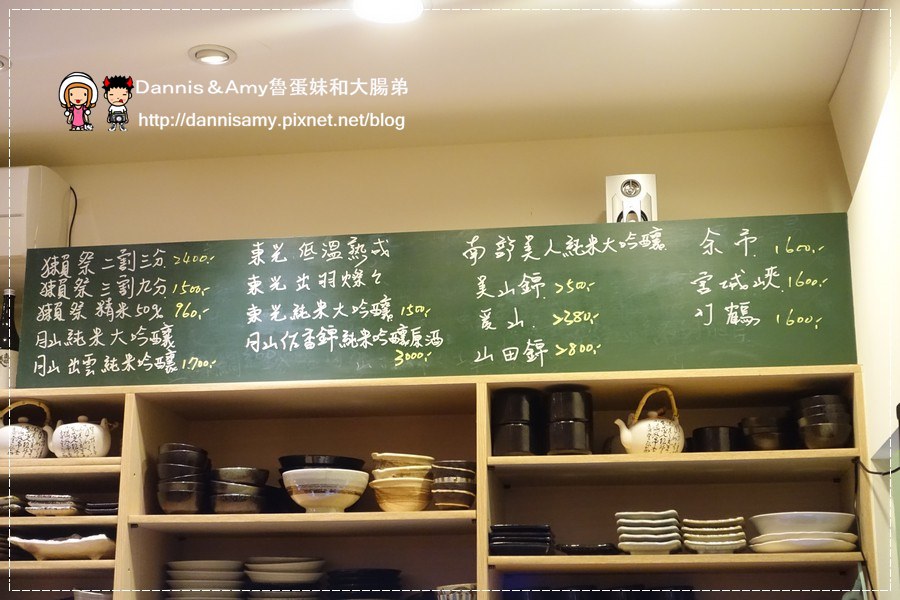 Dannis & Amy魯蛋妹和大腸弟
http://dannisamy.pixnet.net/blog
獺祭 二割三分 2400.-
獺祭 三割九分 1500.-
獺祭 精米50% 960.-
月山純米大吟釀
月山 出雲 純米吟釀 1700.-
東光 低溫熟成
東光 出羽燦々
東光 純米大吟釀 1500.-
月山佐香錦純米吟釀原酒
3000.-
南部美人純米大吟釀
美山錦 2500.-
愛山 2380.-
山田錦 2800.-
余市 1600.-
宮城峽 1600.-
竹鶴 1600.-